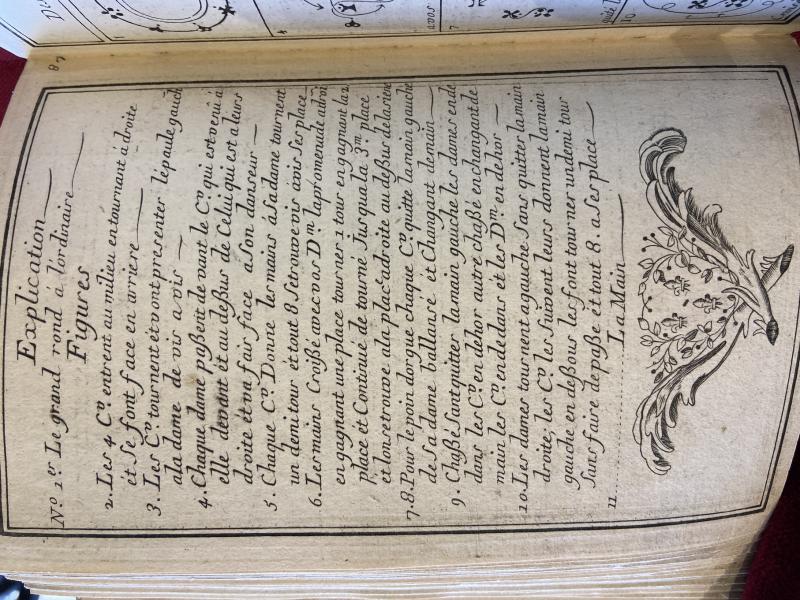 68
Explication
Figures
N.º 1.er Le grand rond á l'ordinaire
2. Les 4 C.rs entrent au milieu en tournant á droite
et se font face en arriere
3. Les C.rs tournent et vont presenter lepaule gauch
a la dame de vis a vis
4. Chaque dame paßent de vant le C.er qui est venu á
elle devant et au deßus de Celui qui est a leurs
droite et va fair face a son danseur
5. Chaque C.er Donne les mains á sa dame tournent
un demi tour et tout 8 se trouve vis avis ses place
6. Les mains Croißé avec vos D.m la promenade a droi
en gagnant une place tourner 1 tour en gagnant la 2
place et Continué de tourné Jusqua la 3.m place
et lon se trouve a la plac a droite au deßus de la siene
7.8. Pour le poin dorgue chaque C.er quitte la main gauche
de sa dame ballansé et Changant demain
9. Chaßé sant quitter la main gauche les dames ende
dans les C.rs en dehor autre chaßé en changant de
main les C.rs ende dans et les D.m en dehor
10. Les dames tournent a gauche sans quitter la main
droite, les C.rs les suivent leurs donnent la main
gauche en deßous les font tourner un demi tour
sans faire de paße et tout 8. a ses place
11. La Main